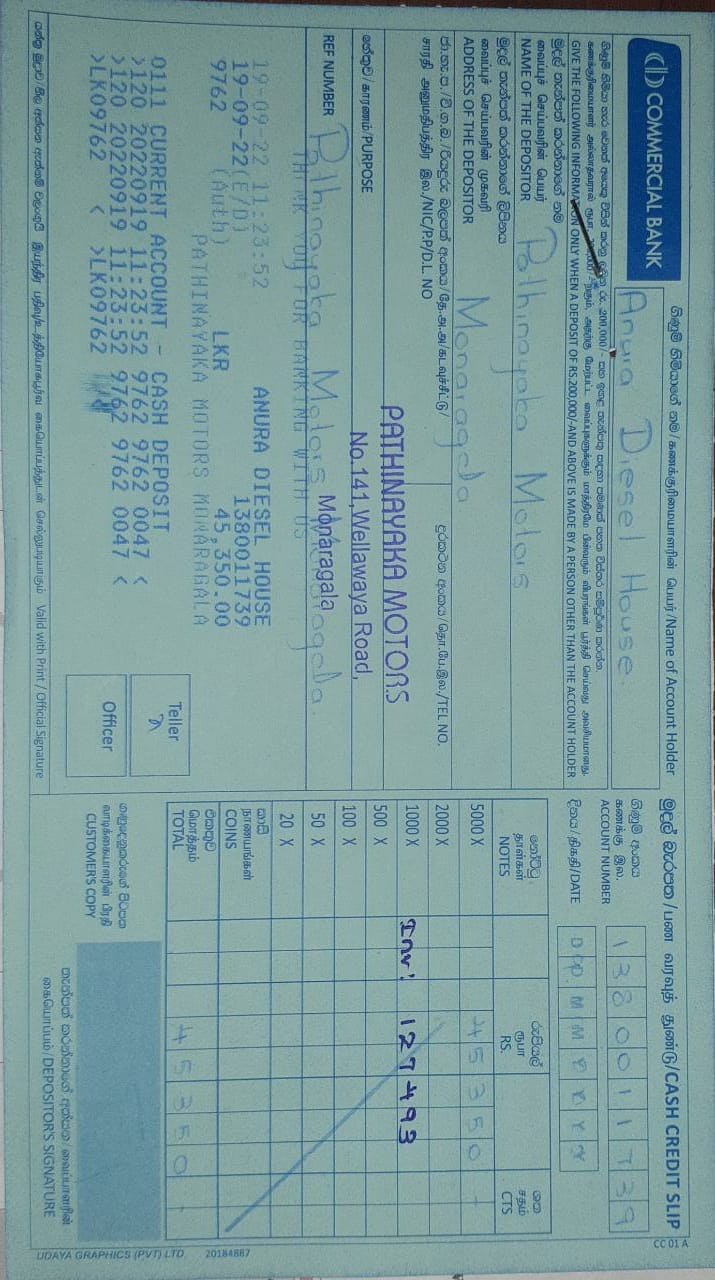 COMMERCIAL BANK
ගිණුම් හිමියාගේ නම/கணக்குரிமையாளரின் பெயர்/Name of Account Holder
Anura Diesel House.
GIVE THE FOLLOWING INFORMATION ONLY WHEN A DEPOSIT OF RS.200,000/-AND ABOVE IS MADE BY A PERSON OTHER THAN THE ACCOUNT HOLDER
මුදල් තැන්පත් කරන්නාගේ නම
வைப்புச் செய்பவரின் பெயர்
NAME OF THE DEPOSITOR
Pathinayaka Motors
මුදල් තැන්පත් කරන්නාගේ ලිපිනය
வைப்புச் செய்பவரின் முகவரி
ADDRESS OF THE DEPOSITOR
Monaragala
சாரதி அனுமதிபத்திர இல./NIC/P.P/D.L NO
දුරකථන අංකය/தொ.பே.இல./TEL NO.
PATHINAYAKA MOTORS
No.141,Wellawaya Road,
Monaragala
හේතුව/காரணம்/PURPOSE
REF NUMBER
Pathinayaka Motors Monaragala.
THANK YOU FOR BANKING WITH US
19-09-22 11:23:52 ANURA DIESEL HOUSE
19-09-22(E/D) 1380011739
9762 LKR 45,350.00
(Auth) PATHINAYAKA MOTORS MONARAGALA
0111 CURRENT ACCOUNT - CASH DEPOSIT
>120 20220919 11:23:52 9762 9762 0047 <
>120 20220919 11:23:52 9762 9762 0047 <
>LK09762 < >LK09762
Teller
Officer
Valid with Print / Official Signature
මුදල් බැරපත/பண வரவுத் துண்டு/CASH CREDIT SLIP
CC 01 A
ගිණුම් අංකය
கணக்கு இல.
ACCOUNT NUMBER
1380011739
දිනය/திகதி/DATE
D D M M Y Y Y Y
නෝට්ටු
தாள்கள்
NOTES
රුපියල්
ரூபா
RS.
ශත
சதம்
CTS
5000 X 45350 -
2000 X
1000 X Inv: 127493
500 X
100 X
50 X
20 X
කාසි
நாணயங்கள்
COINS
එකතුව
மொத்தம்
TOTAL
45350 -
ගනුදෙනුකරුගේ පිටපත
வாடிக்கையாளரின் பிரதி
CUSTOMER'S COPY
තැන්පත් කරන්නාගේ අත්සන/வைப்பாளரின்
கையொப்பம்/DEPOSITOR'S SIGNATURE
UDAYA GRAPHICS (PVT) LTD. 20184867